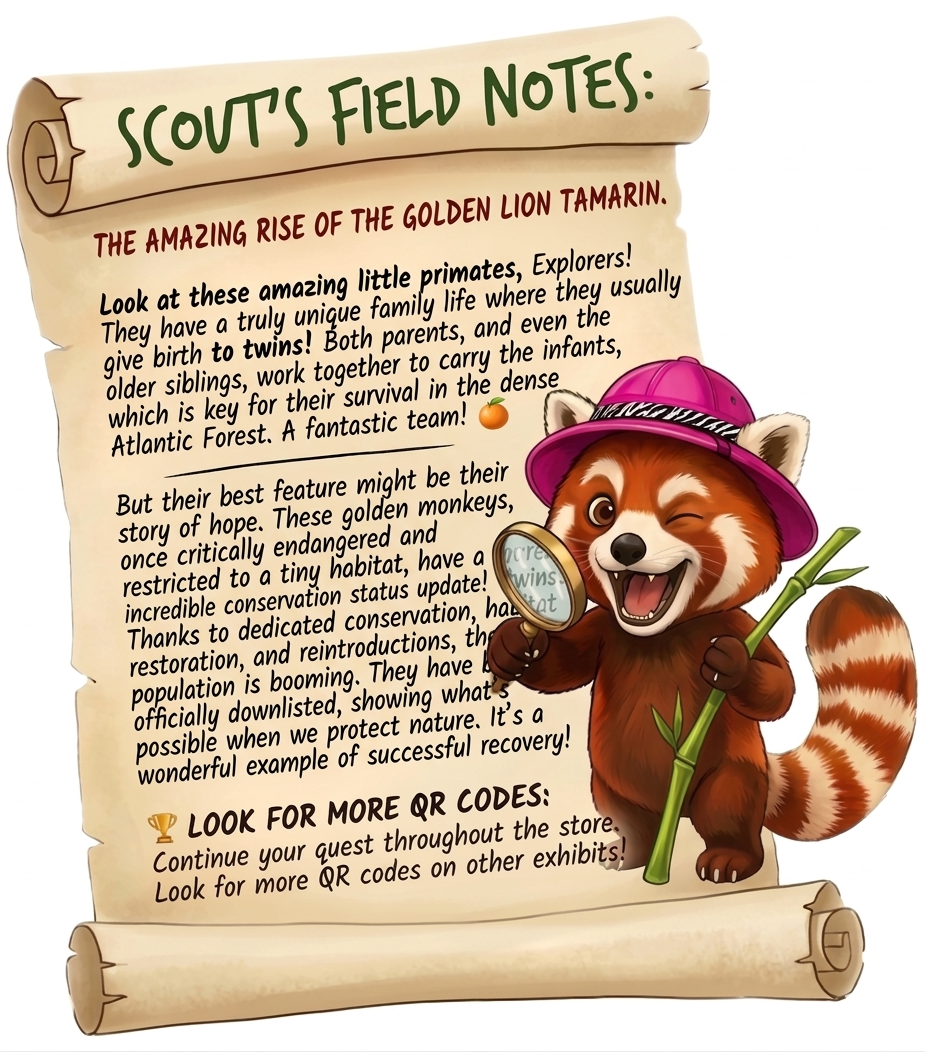 SCOUT'S FIELD NOTES:
THE AMAZING RISE OF THE GOLDEN LION TAMARIN.
Look at these amazing little primates, Explorers!
They have a truly unique family life where they usually
give birth to twins! Both parents, and even the
older siblings, work together to carry the infants,
which is key for their survival in the dense
Atlantic Forest. A fantastic team!
But their best feature might be their
story of hope. These golden monkeys,
once critically endangered and
restricted to a tiny habitat, have a
incredible conservation status update!
twins!
Thanks to dedicated conservation,
restoration, and reintroductions,
population is booming. They have
officially downlisted, showing what's
possible when we protect nature. It's a
wonderful example of successful recovery!
LOOK FOR MORE QR CODES:
Continue your quest throughout the store.
Look for more QR codes on other exhibits!